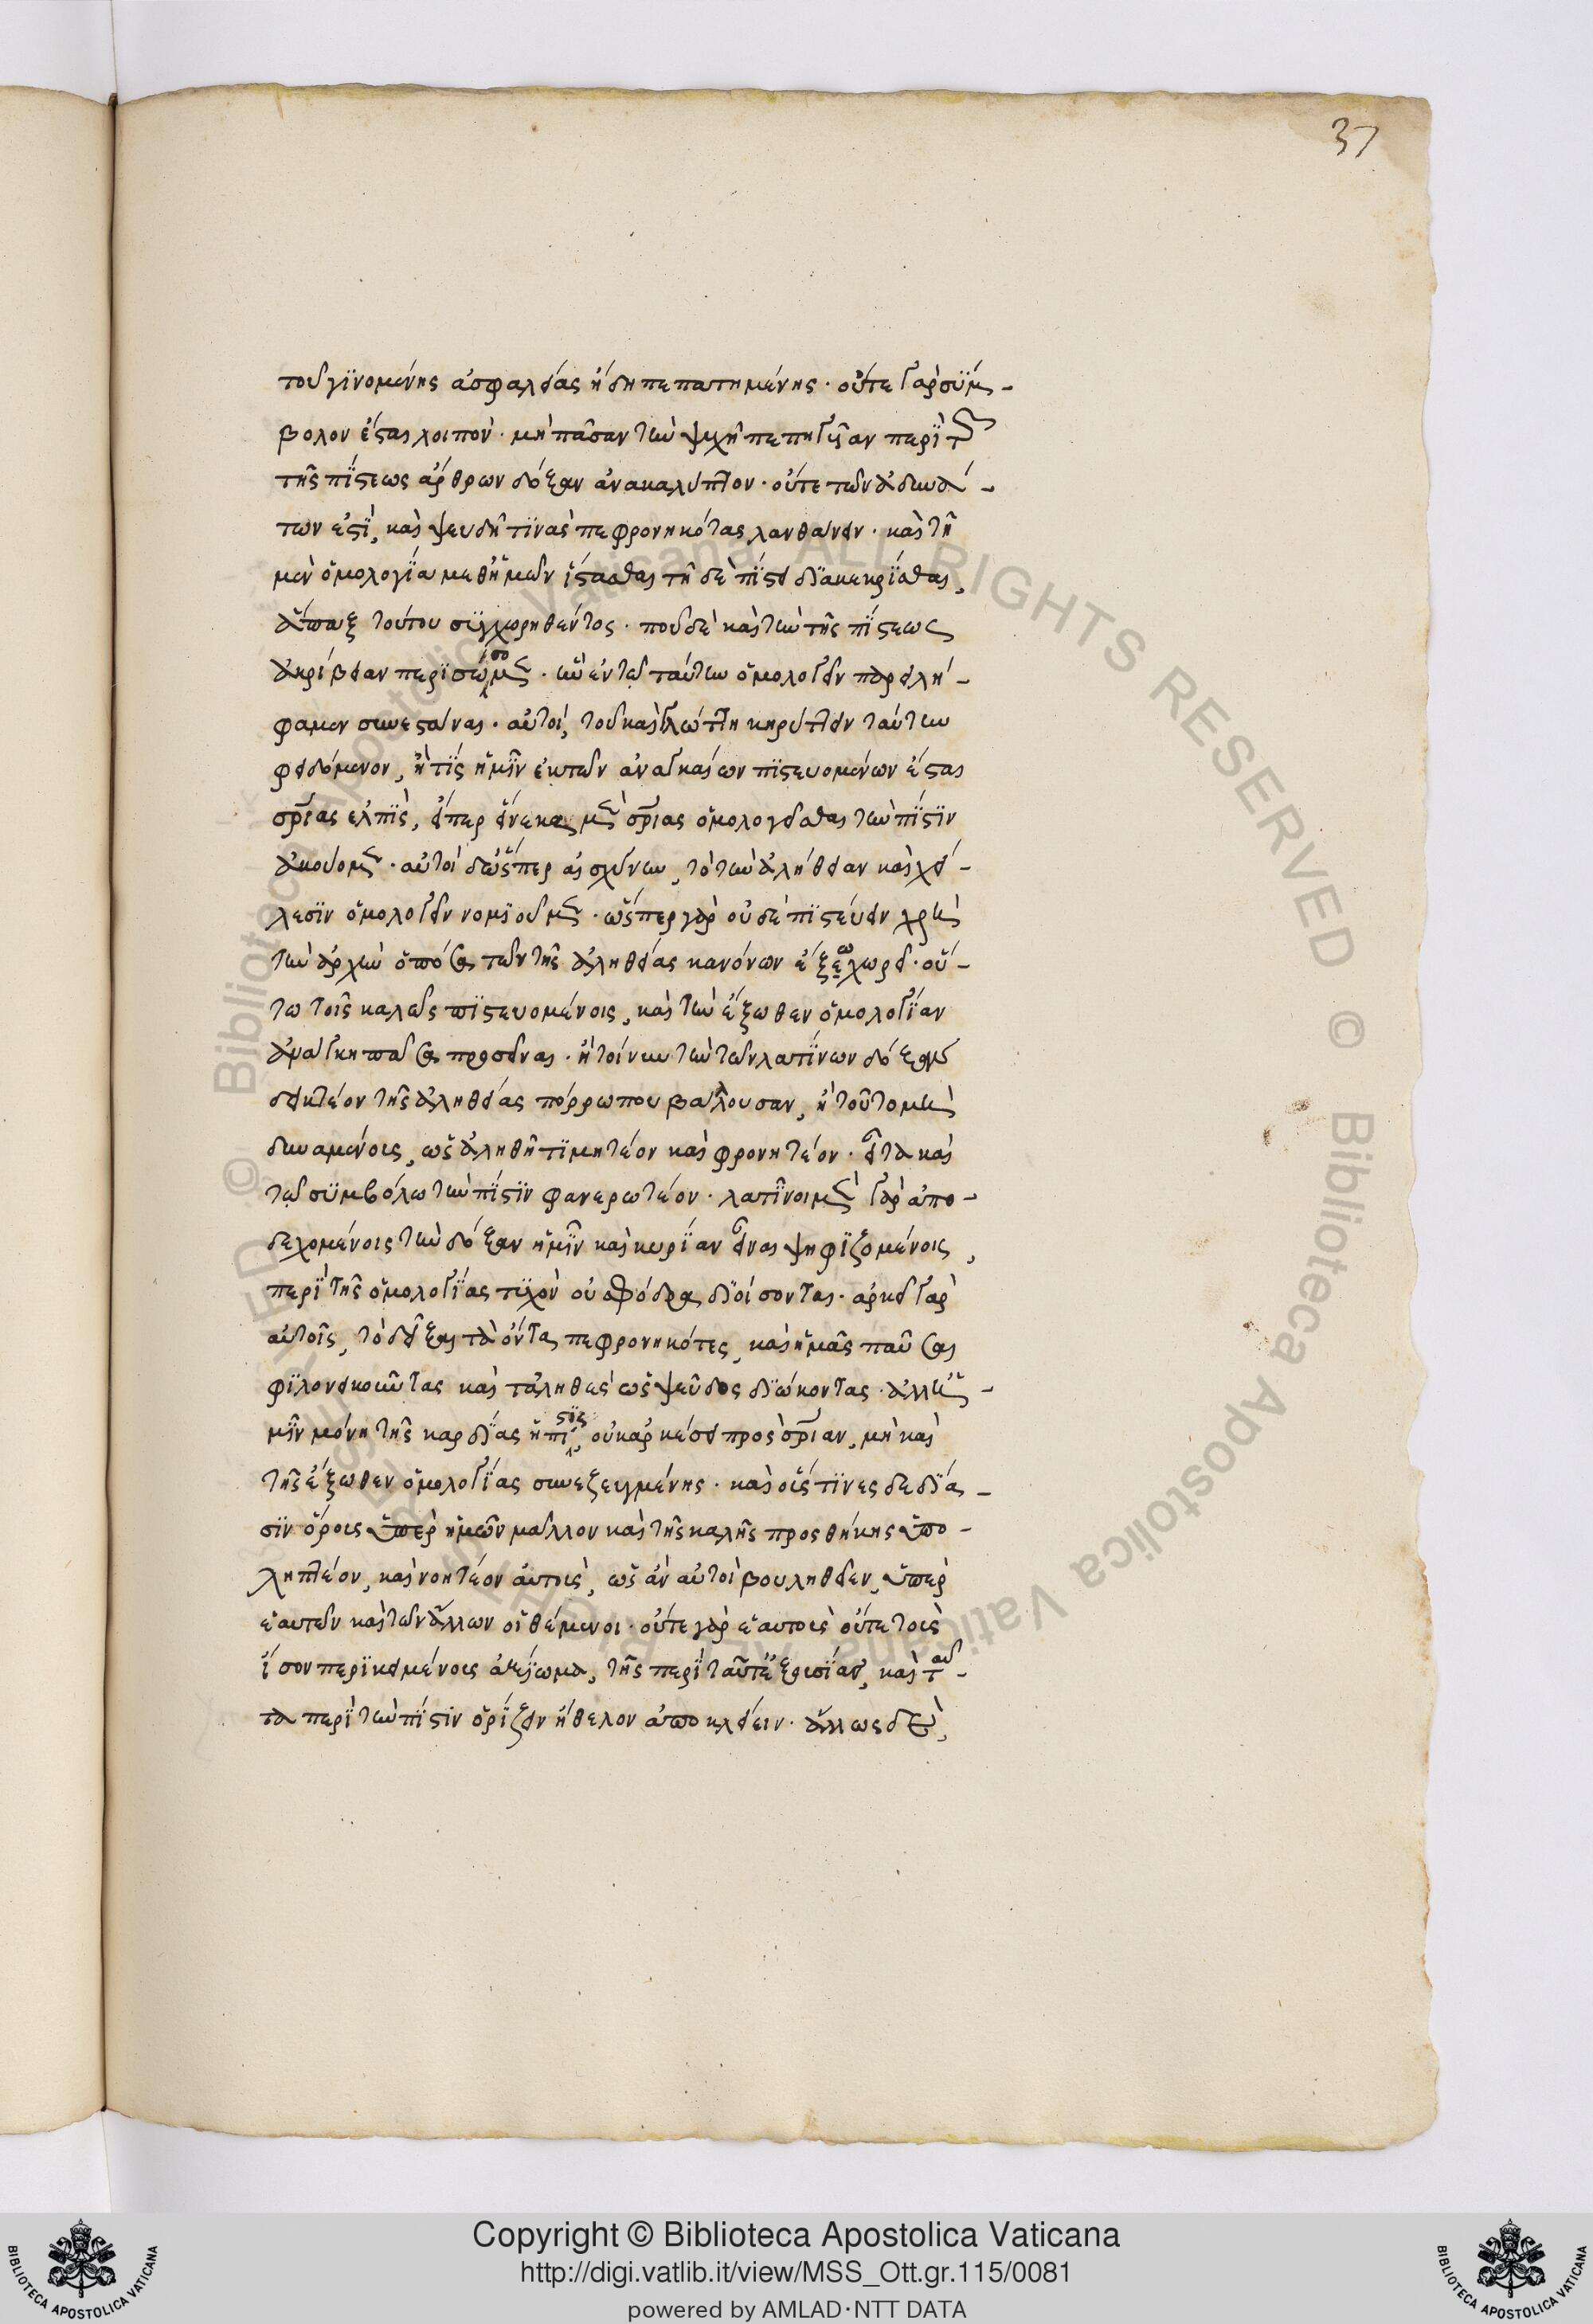 37
τοῦ γϊνομένης ἀσφαλείας ἤδη πεπατημένης · οὔτε γὰρ σύμ-
βολον ἔσται λοιπὸν · μὴ πᾶσαν τὴν ψυχῆ πεπηγυῖαν περὶ τ
τῆς πίστεως ἄρθρων δόξαν ἀνακαλύπτον · οὔτε τῶν ἀδυνά-
των ἐστὶ, καὶ ψευδῆ τϊνὰς πεφρονηκότας λανθάνειν · καὶ τῆ
μὲν ὁμολογία μεθ' ἡμῶν ἵστασθαι τῆ δὲ πίστει διακεκρίσθαι,
ἅπαξ τούτου συγχωρηθέντος · ποῦ δὲ καὶ τὴν τῆς πίστεως
ἀκρίβειαν περισώσομεν · ἣν ἐν τῶ ταύτην ὁμολογεῖν παρειλή-
φαμεν συνεστάναι · αὐτοὶ, τοῦ καὶ γλώττη κηρύττειν ταύτην
φειδόμενοι, ἢ τίς ἡμῖν ἐκ τῶν ἀναγκαίων πιστευομένων ἔσται
σρίας ἐλπὶς, εἴπερ ἕνεκα μὲν σρίας ὁμολογεῖσθαι τὴν πίστιν
ἀκούομεν · αὐτοὶ δ' ὥσπερ αἰσχύνην, τὸ τὴν ἀλήθειαν καὶ χεί-
λεσιν ὁμολογεῖν νομιοῦμεν · ὥσπερ γὰρ οὐδὲ πιστεύειν χρὴ
τὴν ἀρχὴν ὁπόσα τῶν τῆς ἀληθείας κανόνων ἔξω χωρεῖ · οὕ-
τω τοῖς καλῶς πιστευομένοις, καὶ τὴν ἔξωθεν ὁμολογίαν
ἀνάγκη πᾶσα προσεῖναι · ἢ τοίνυν τὴν τῶν λατίνων δόξαν
δεικτέον τῆς ἀληθείας πόρρω που βάλλουσαν, ἢ τοῦτο μὴ
δυναμένοις, ὡς ἀληθῆ τιμητέον καὶ φρονητέον · εἶτα καὶ
τῶ συμβόλω τὴν πίστιν φανερωτέον · λατίνοι μὲν γὰρ ἀπο-
δεχομένοις τὴν δόξαν ἡμῖν καὶ κυρίαν εἶναι ψηφιζομένοις,
περὶ τῆς ὁμολογίας τυχὸν οὐ σφόδρα διοίσονται · ἀρκεῖ γὰρ
αὐτοῖς, τὸ δεῖξαι τὰ ὄντα πεφρονηκότες, καὶ ἡμᾶς παῦσαι
φιλονεικοῦντας καὶ τἀληθὲς ὡς ψεῦδος διώκοντας · ἀλλ' ἡ-
μῖν μόνη τῆς καρδίας ἡ πίστις, οὐκ ἀρκέσει πρὸς σρίαν, μὴ καὶ
τῆς ἔξωθεν ὁμολογίας συνεζευγμένης · καὶ οἷς τινες δεδία-
σιν ὅροις ὑπὲρ ἡμῶν μᾶλλον καὶ τῆς καλῆς προσθήκης ὑπο-
ληπτέον, καὶ νοητέον αὐτοὶς, ὡς ἂν αὐτοὶ βουληθεῖεν, ὑπὲρ
ἑαυτῶν καὶ τῶν ἄλλων οἱ θέμενοι · οὔτε γὰρ ἑαυτοὶς οὔτε τοὶς
ἴσον περικειμένοις ἀξίωμα, τῆς περὶ ταῦτ' ἐξουσίαν, καὶ ταῦ-
τα περὶ τὴν πίστιν ὁρίζειν ἤθελον ἀποκλείειν · ἄλλως δὲ,
Copyright © Biblioteca Apostolica Vaticana
http://digi.vatlib.it/view/MSS_Ott.gr.115/0081
powered by AMLAD·NTT DATA